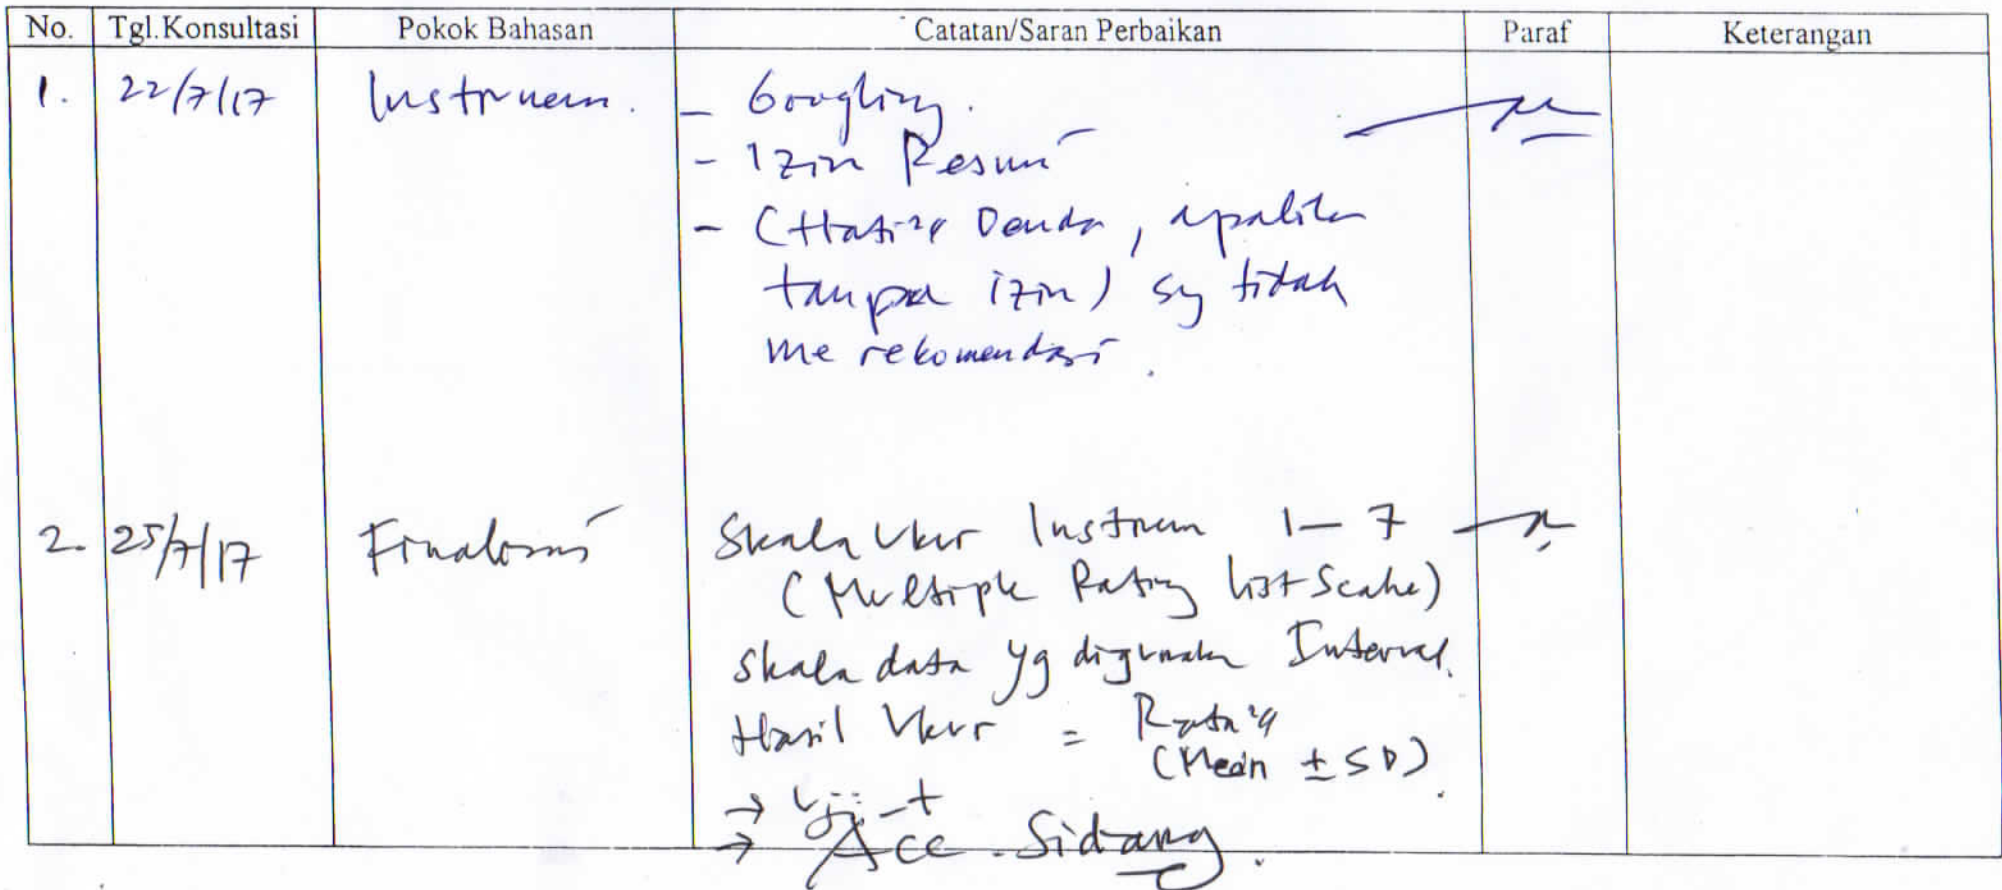 No. Tgl.Konsultasi Pokok Bahasan Catatan/Saran Perbaikan Paraf Keterangan
1. 22/7/17 Instrumen. - Googling.
- Izin Resmi
- (Hati2 Denda, apabila
tanpa izin) sy tidak
me rekomendasi.
2. 25/7/17 Finalisasi Skala Ukur Instrumen 1-7
(Multiple Rating List Scale)
Skala data yg digunakan Interval.
Hasil Ukur = Rata2
(Mean ± SD).
→ Uji-t
→ Acc. Sidang.